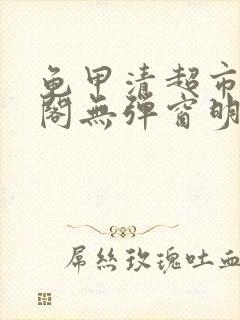 龟甲清超市
阁無弹窗明
屌丝玫瑰吐血